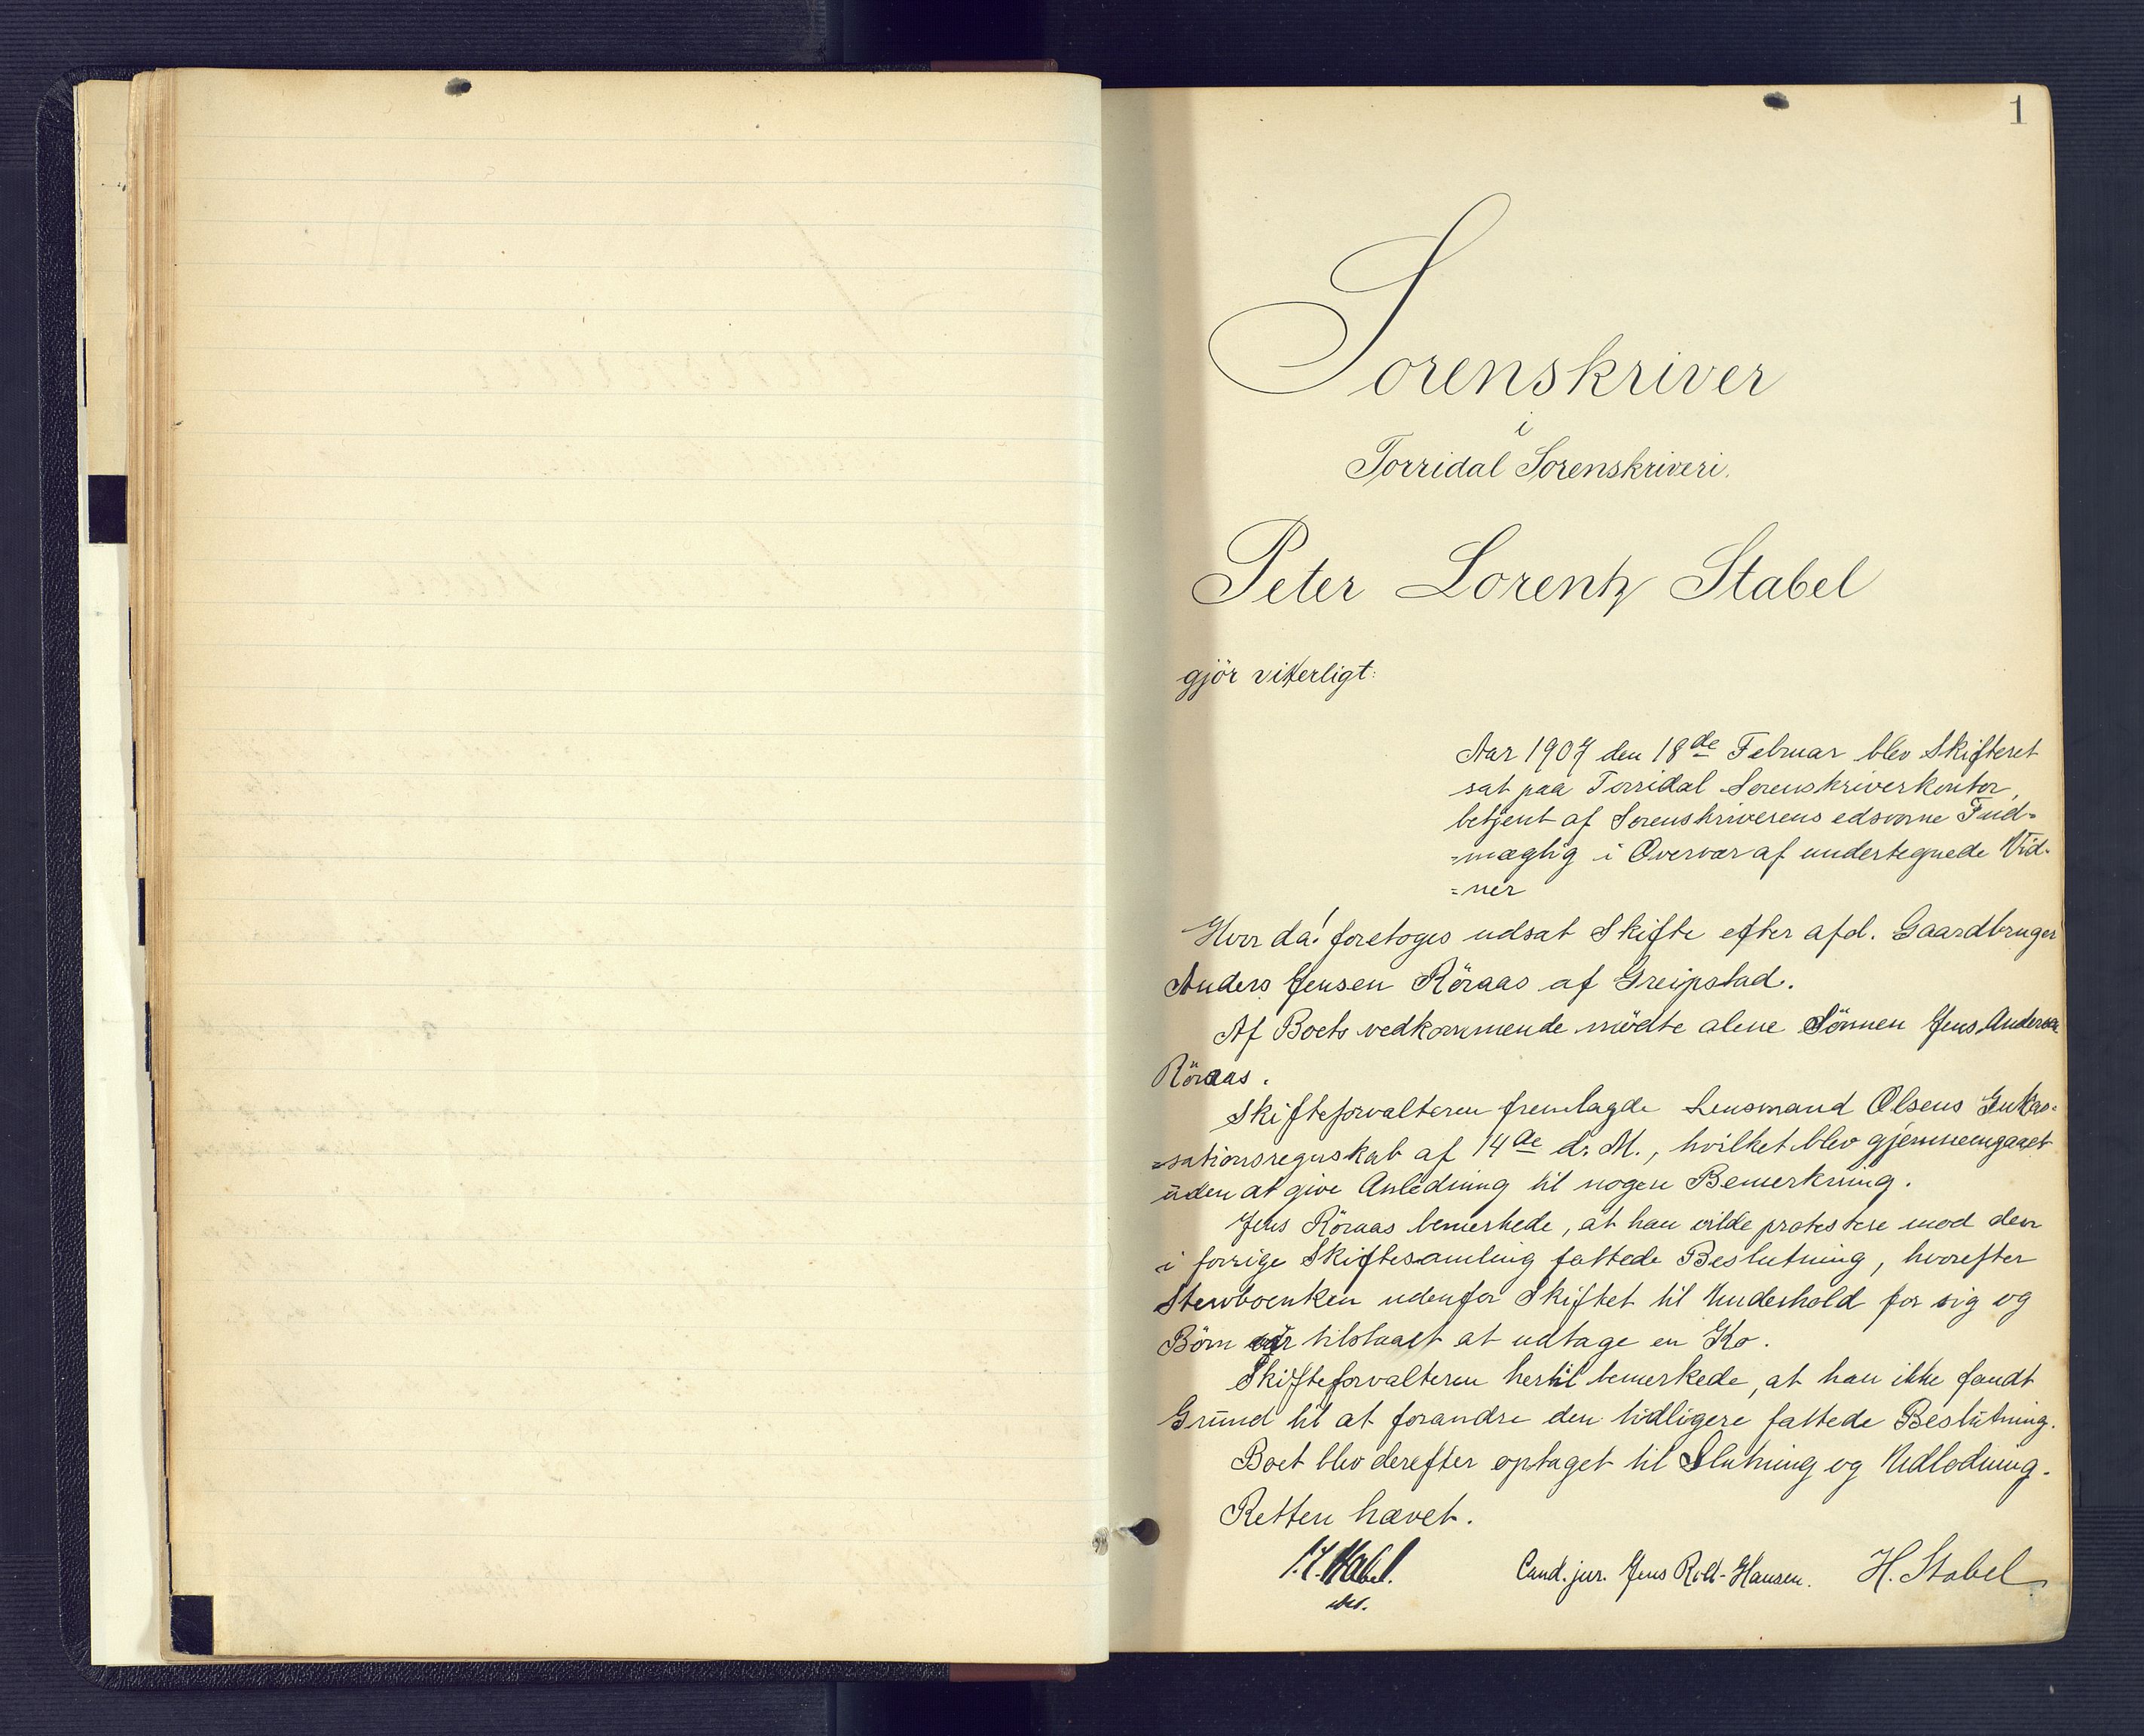 1
Sorenskriver
i
Torridal Sorenskriveri.
Peter Lorentz Stabel
gjör vitterligt:
Aar 1907 den 18de Februar blev Skifteret
sat paa Torridal Sorenskriverkontor,
betjent af Sorenskriverens edsvorne Fuld=
=mægtig i Overvær af undertegnede Vid=
=ner
Hvor da! foretoges udsat Skifte efter afd. Gaardbruger
Anders Jensen Röraas af Greipstad.
Af Boets vedkommende mödte alene Sönnen Jens Andersen
Röraas.
Skifteforvalteren fremlagde Lensmand Olsens Inkas=
=sationsregnskab af 14de d. M., hvilket blev gjennemgaaet
uden at give Anledning til nogen Bemerkning.
Jens Röraas bemerkede, at han vilde protestere mod den
i forrige Skiftesamling fattede Beslutning, hvorefter
Stervboenken udenfor Skiftet til Underhold for sig og
Börn var tilstaaet at udtage en Ko.
Skifteforvalteren hertil bemerkede, at han ikke fandt
Grund til at forandre den tidligere fattede Beslutning.
Boet blev derefter optaget til Slutning og Udlodning.
Retten hævet.
Stabel.
Cand. jur. Jens Roll-Hansen. H. Stabel